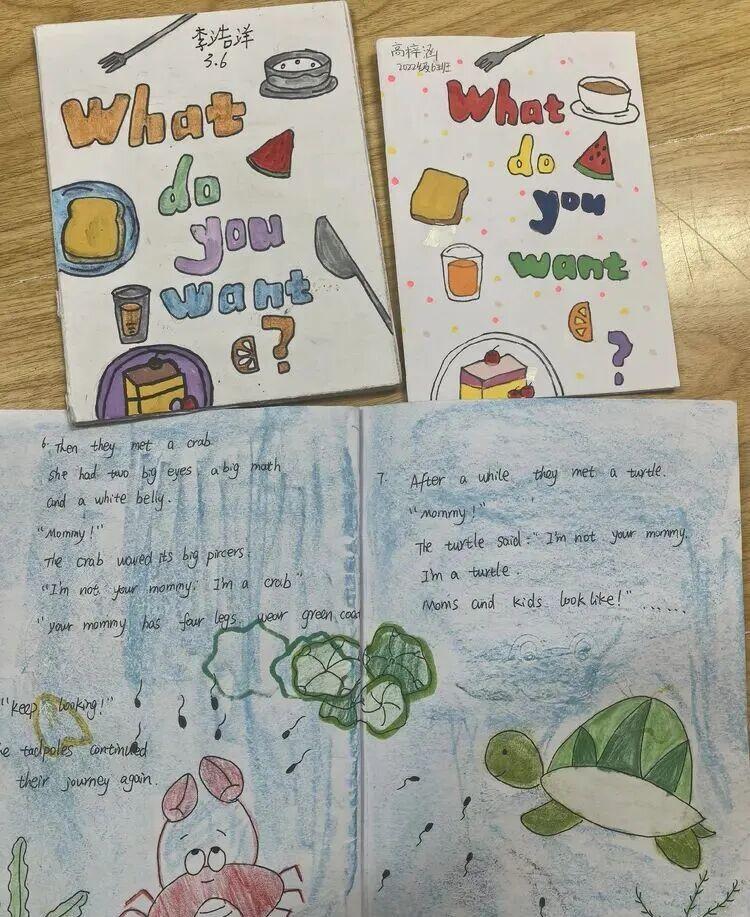 李浩洋
3.6
What
do
you
want
?
高梓涵
2022级6班
What
do
you
want
?
6. Then they met a crab
She had two big eyes, a big math
and a white belly.
"Mommy!"
The crab waved its big pincers.
"I'm not your mommy. I'm a crab"
"your mommy has four legs, wear green coat
"keep looking!"
e tadpoles continued
their journey again.
7. After a while they met a turtle.
"Mommy!"
The turtle said: "I'm not your mommy.
I'm a turtle.
Moms and kids look like!" ......